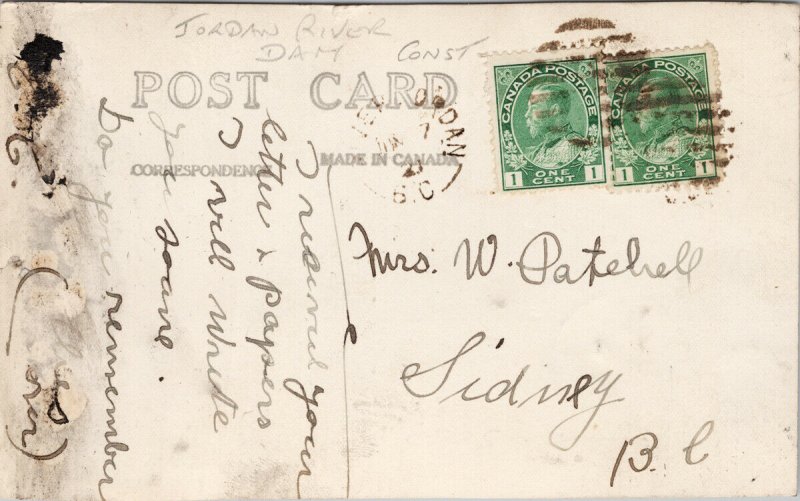 JORDAN RIVER
DAM CONST
POST CARD
CORRESPONDENCE
MADE IN CANADA
CANADA POSTAGE
1 ONE CENT 1
CANADA POSTAGE
1 ONE CENT 1
JORDAN
7
B.C
I recieved your
letter & papers
I will write
you soone.
Do you remember
(over)
Mrs. W. Patchell
Sidney
B.C